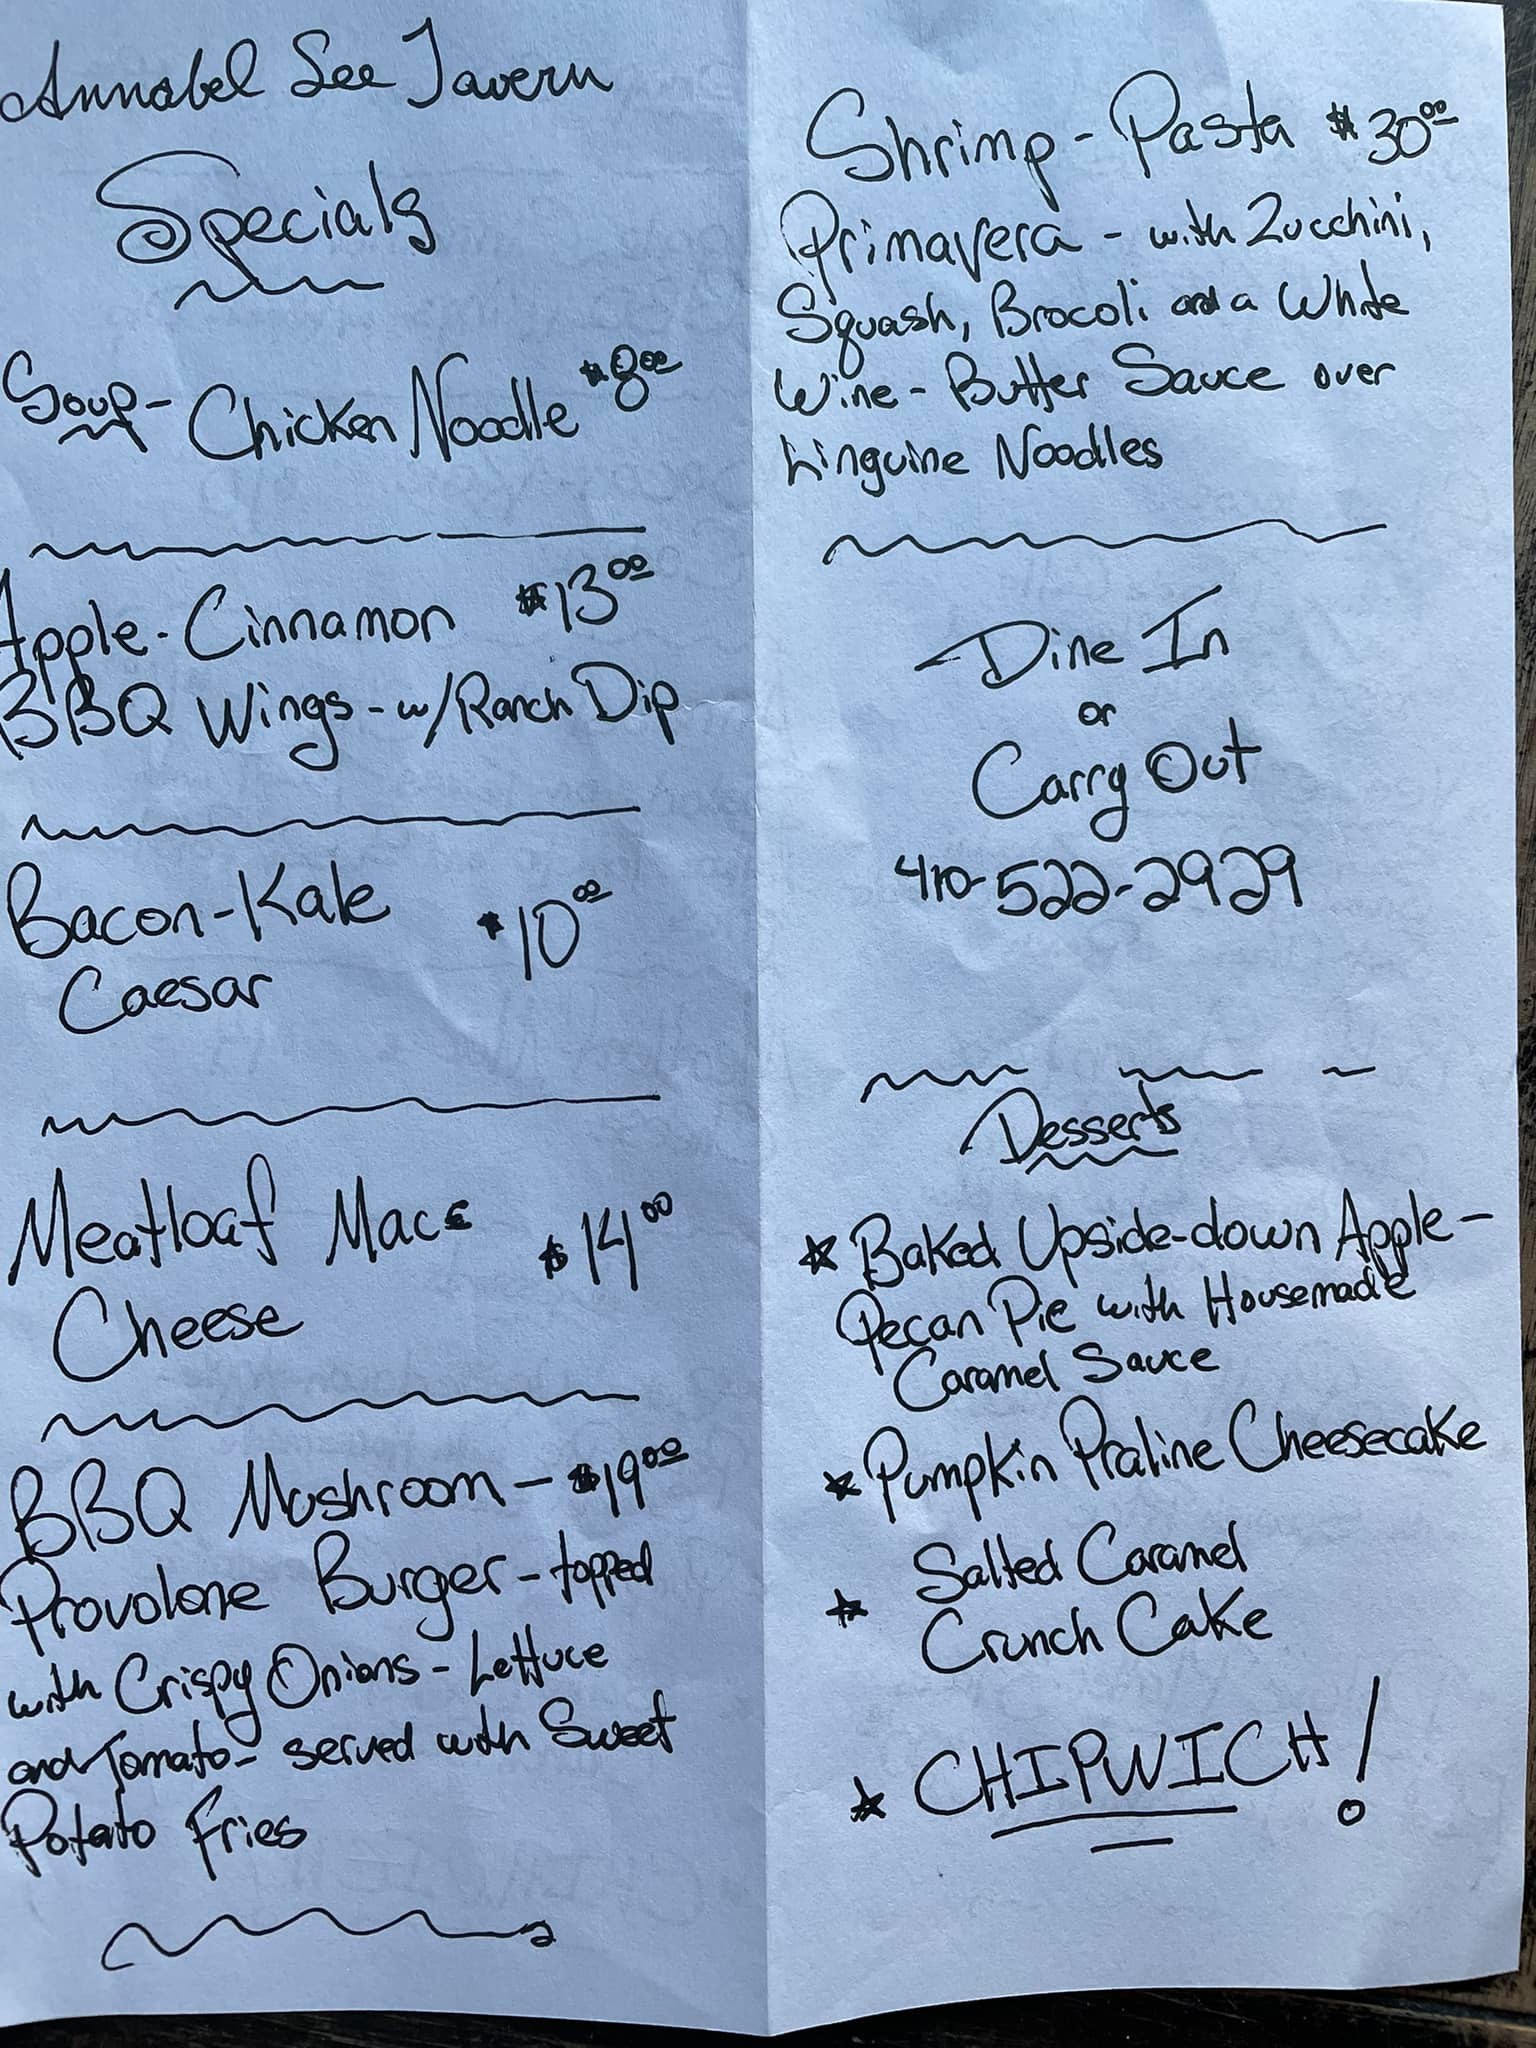 Annabel Lee Tavern
Specials
Soup- Chicken Noodle $8.00
Apple-Cinnamon $13.00
BBQ Wings- w/Ranch Dip
Bacon-Kale
Caesar $10.00
Meatloaf Mac &
Cheese $14.00
BBQ Mushroom - $19.00
Provolone Burger - topped
with Crispy Onions - Lettuce
and Tomato - served with Sweet
Potato Fries
Shrimp - Pasta $30.00
Primavera - with Zucchini,
Squash, Brocoli and a White
Wine - Butter Sauce over
Linguine Noodles
Dine In
or
Carry Out
410-522-2929
Desserts
★ Baked Upside-down Apple-
Pecan Pie with Housemade
Caramel Sauce
★ Pumpkin Praline Cheesecake
★ Salted Caramel
Crunch Cake
★ CHIPWICH!